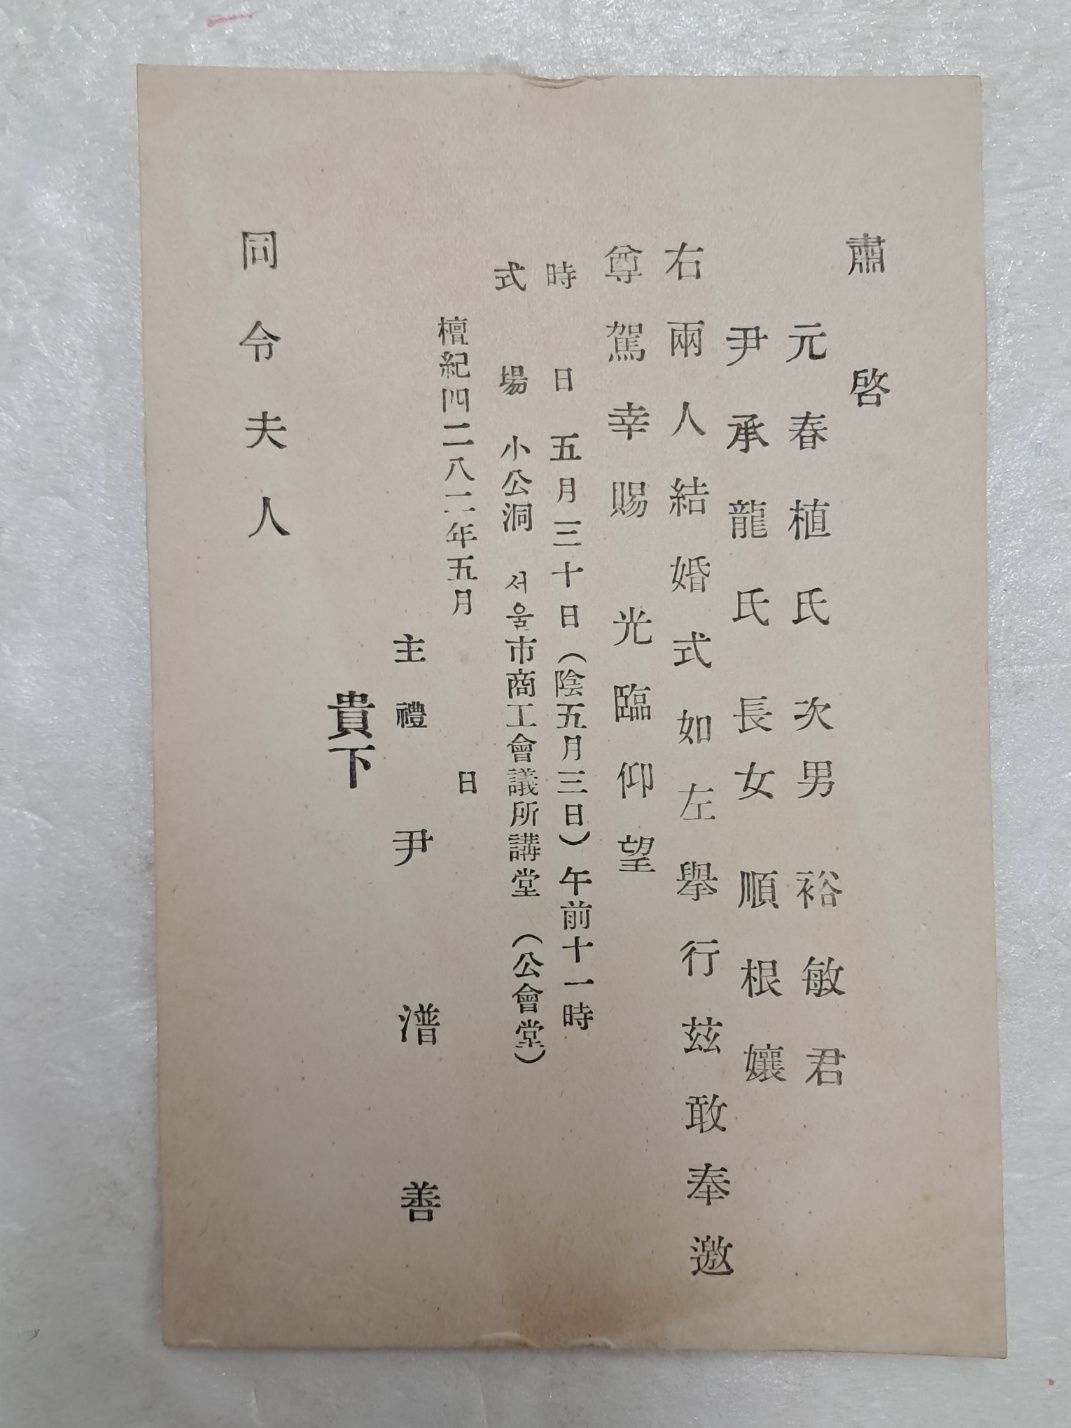 肅啓
元春植氏 次男 裕敏君
尹承龍氏 長女 順根孃
右兩人結婚式如左擧行玆敢奉邀
尊駕幸賜 光臨仰望
時日 五月三十日(陰五月三日)午前十一時
式場 小公洞 서울市商工會議所講堂 (公會堂)
檀紀四二八二年五月 日
主禮 尹潽善
貴下
同令夫人